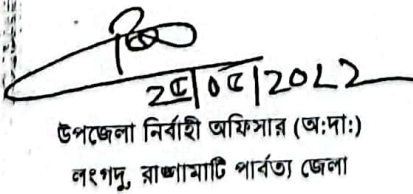 ২৫|০৫|2022
উপজেলা নির্বাহী অফিসার (অ:দা:)
লংগদু, রাঙ্গামাটি পার্বত্য জেলা